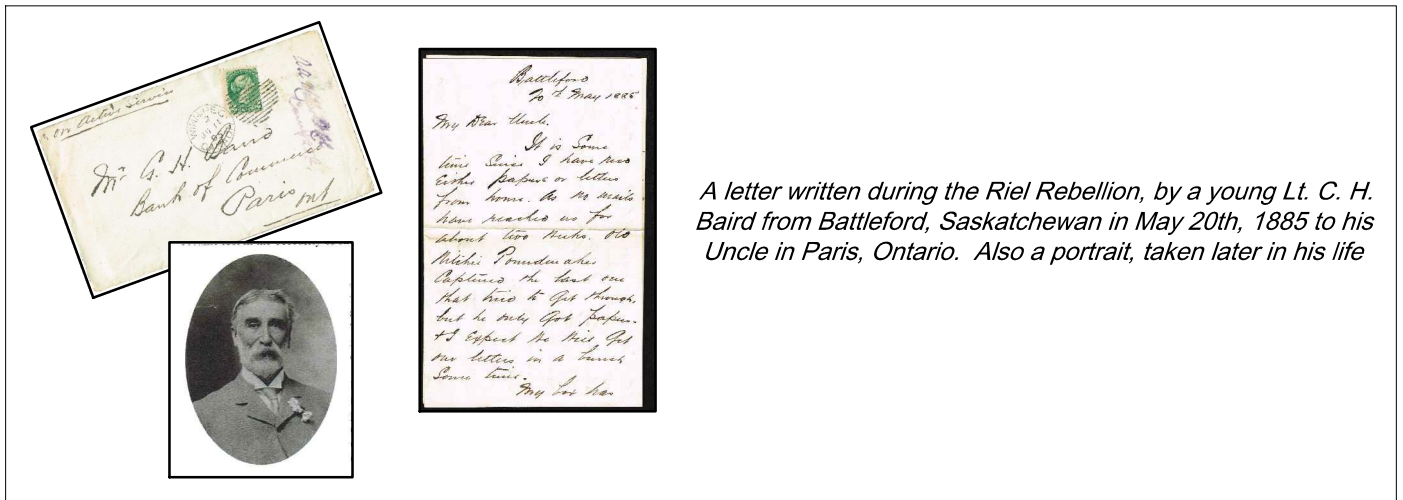 on Active Service
Mr G. H. Baird
Bank of Commerce
Paris
ont
Battleford
20th May 1885
My Dear Uncle.
It is Some
time Since I have had
Either papers or letters
from home. As no mails
have reached us for
about two weeks. Old
Poundmaker
Captured the last one
that tried to Get through,
but he only Got papers.
& I Expect we will Get
our letters in a bunch
Some time.
My has
A letter written during the Riel Rebellion, by a young Lt. C. H.
Baird from Battleford, Saskatchewan in May 20th, 1885 to his
Uncle in Paris, Ontario. Also a portrait, taken later in his life